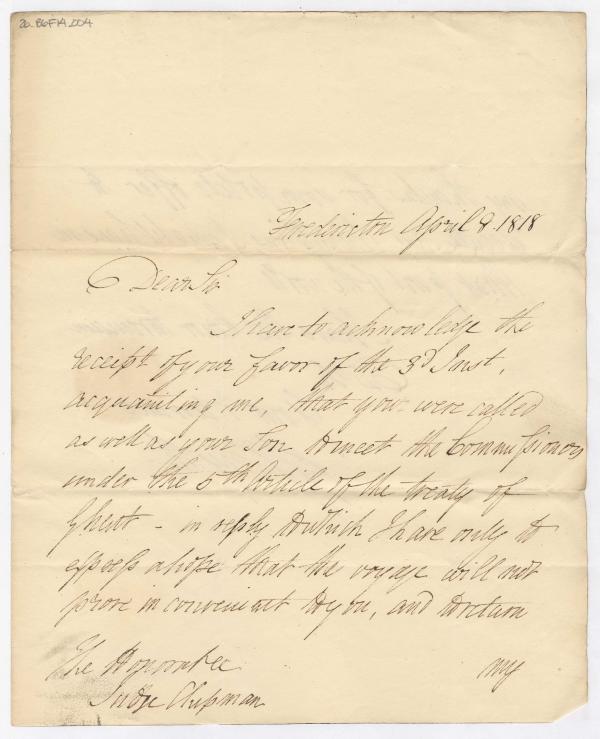 20.B6F1A.004
Fredericton April 9. 1818
Dear Sir
I have to acknowledge the
receipt of your favor of the 3d Inst,
acquainting me, that you were called
as well as your Son to meet the Commissioners
under the 5th Article of the treaty of
Ghent - in reply to which I have only to
express a hope that the voyage will not
prove inconvenient to you, and to return
The Honorable my
Judge Chipman